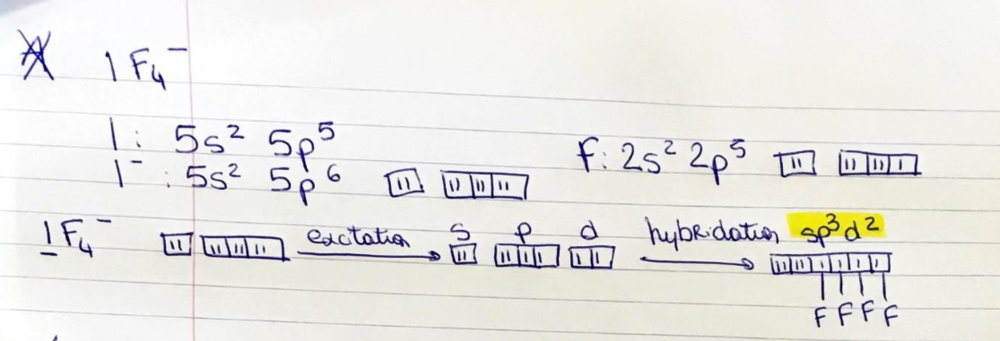 IF₄⁻
I: 5s² 5p⁵ f: 2s² 2p⁵
I⁻: 5s² 5p⁶
IF₄⁻ excitation s p d hybridation sp³d²
F F F F